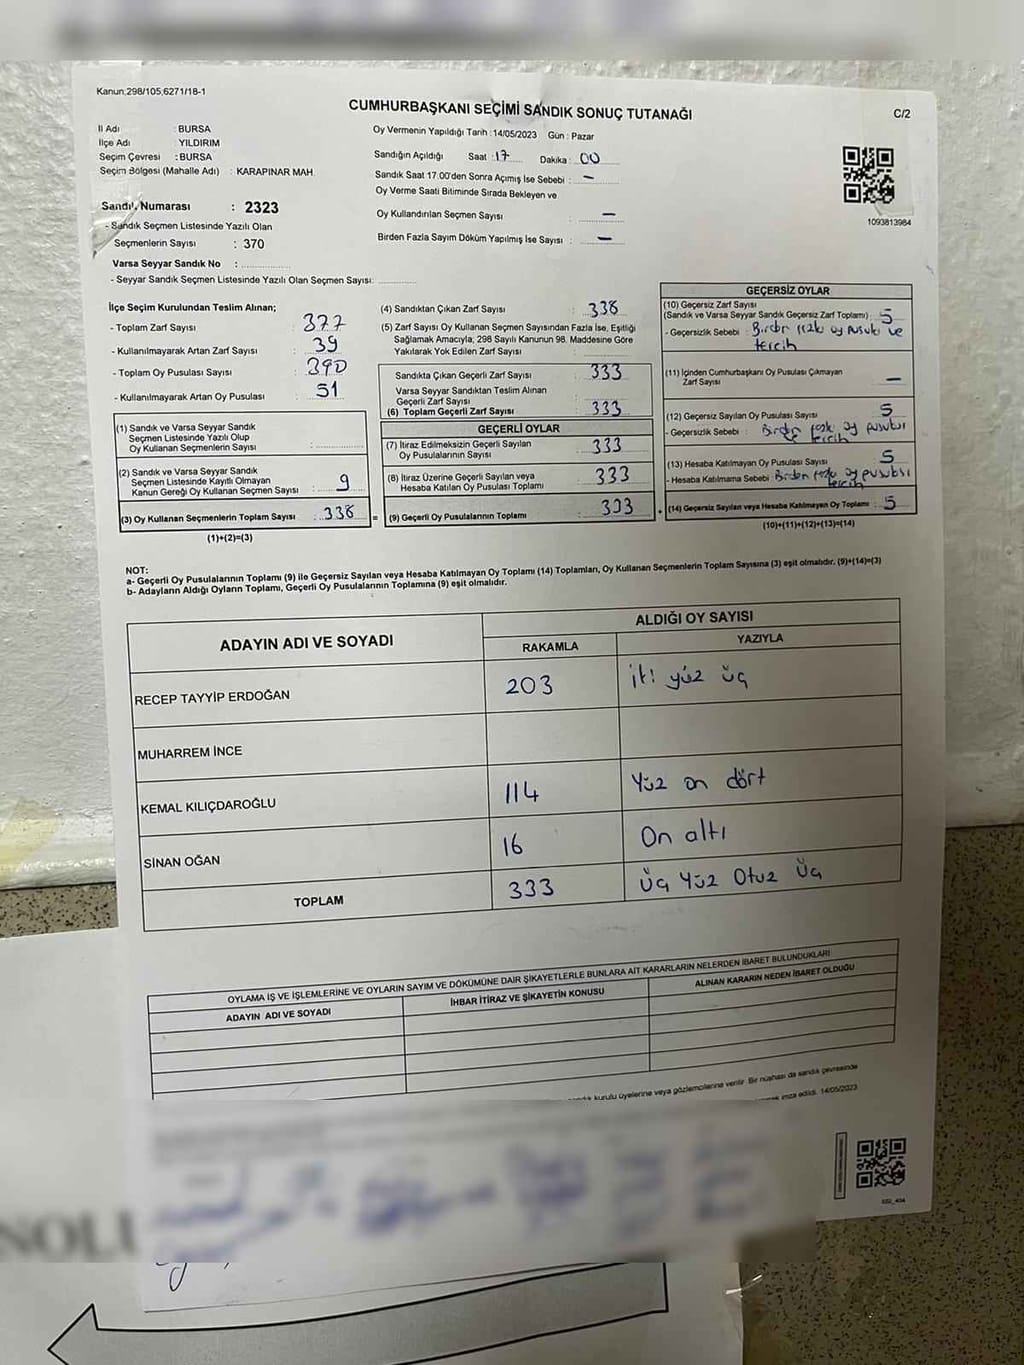 Kanun:298/105,6271/18-1
CUMHURBAŞKANI SEÇİMİ SANDIK SONUÇ TUTANAĞI
C/2
İl Adı : BURSA
İlçe Adı : YILDIRIM
Seçim Çevresi : BURSA
Seçim Bölgesi (Mahalle Adı) : KARAPINAR MAH.
Sandık Numarası : 2323
- Sandık Seçmen Listesinde Yazılı Olan
Seçmenlerin Sayısı : 370
Varsa Seyyar Sandık No :
- Seyyar Sandık Seçmen Listesinde Yazılı Olan Seçmen Sayısı:
Oy Vermenin Yapıldığı Tarih : 14/05/2023 Gün : Pazar
Sandığın Açıldığı Saat : 17 Dakika : 00
Sandık Saat 17.00'den Sonra Açımış İse Sebebi : -
Oy Verme Saati Bitiminde Sırada Bekleyen ve
Oy Kullandırılan Seçmen Sayısı : -
Birden Fazla Sayım Döküm Yapılmış İse Sayısı : -
1093813984
İlçe Seçim Kurulundan Teslim Alınan;
- Toplam Zarf Sayısı : 377
- Kullanılmayarak Artan Zarf Sayısı : 39
- Toplam Oy Pusulası Sayısı : 390
- Kullanılmayarak Artan Oy Pusulası : 51
(1) Sandık ve Varsa Seyyar Sandık
Seçmen Listesinde Yazılı Olup
Oy Kullanan Seçmenlerin Sayısı :
(2) Sandık ve Varsa Seyyar Sandık
Seçmen Listesinde Kayıtlı Olmayan
Kanun Gereği Oy Kullanan Seçmen Sayısı : 9
(3) Oy Kullanan Seçmenlerin Toplam Sayısı : 338
(1)+(2)=(3)
(4) Sandıktan Çıkan Zarf Sayısı : 338
(5) Zarf Sayısı Oy Kullanan Seçmen Sayısından Fazla İse, Eşitliği
Sağlamak Amacıyla; 298 Sayılı Kanunun 98. Maddesine Göre
Yakılarak Yok Edilen Zarf Sayısı :
Sandıkta Çıkan Geçerli Zarf Sayısı : 333
Varsa Seyyar Sandıktan Teslim Alınan
Geçerli Zarf Sayısı :
(6) Toplam Geçerli Zarf Sayısı : 333
GEÇERLİ OYLAR
(7) İtiraz Edilmeksizin Geçerli Sayılan
Oy Pusulalarının Sayısı : 333
(8) İtiraz Üzerine Geçerli Sayılan veya
Hesaba Katılan Oy Pusulası Toplamı : 333
= (9) Geçerli Oy Pusulalarının Toplamı : 333
GEÇERSİZ OYLAR
(10) Geçersiz Zarf Sayısı
(Sandık ve Varsa Seyyar Sandık Geçersiz Zarf Toplamı) : 5
- Geçersizlik Sebebi : Birden fazla oy pusula ve
tercih
(11) İçinden Cumhurbaşkanı Oy Pusulası Çıkmayan
Zarf Sayısı : -
(12) Geçersiz Sayılan Oy Pusulası Sayısı : 5
- Geçersizlik Sebebi : Birden fazla oy pusulası
ve tercih
(13) Hesaba Katılmayan Oy Pusulası Sayısı : 5
- Hesaba Katılmama Sebebi : Birden fazla oy pusulası
tercih
+ (14) Geçersiz Sayılan veya Hesaba Katılmayan Oy Toplamı : 5
(10)+(11)+(12)+(13)=(14)
NOT:
a- Geçerli Oy Pusulalarının Toplamı (9) ile Geçersiz Sayılan veya Hesaba Katılmayan Oy Toplamı (14) Toplamları, Oy Kullanan Seçmenlerin Toplam Sayısına (3) eşit olmalıdır. (9)+(14)=(3)
b- Adayların Aldığı Oyların Toplamı, Geçerli Oy Pusulalarının Toplamına (9) eşit olmalıdır.
ADAYIN ADI VE SOYADI
ALDIĞI OY SAYISI
RAKAMLA YAZIYLA
RECEP TAYYİP ERDOĞAN 203 iki yüz üç
MUHARREM İNCE
KEMAL KILIÇDAROĞLU 114 Yüz on dört
SİNAN OĞAN 16 On altı
TOPLAM 333 Üç Yüz Otuz Üç
OYLAMA İŞ VE İŞLEMLERİNE VE OYLARIN SAYIM VE DÖKÜMÜNE DAİR ŞİKAYETLERLE BUNLARA AİT KARARLARIN NELERDEN İBARET BULUNDUKLARI
ADAYIN ADI VE SOYADI İHBAR İTİRAZ VE ŞİKAYETİN KONUSU ALINAN KARARIN NEDEN İBARET OLDUĞU
kurulu üyelerine veya gözlemcilerine verilir. Bir nüshası da sandık çevresinde
imza edildi. 14/05/2023
NOLU